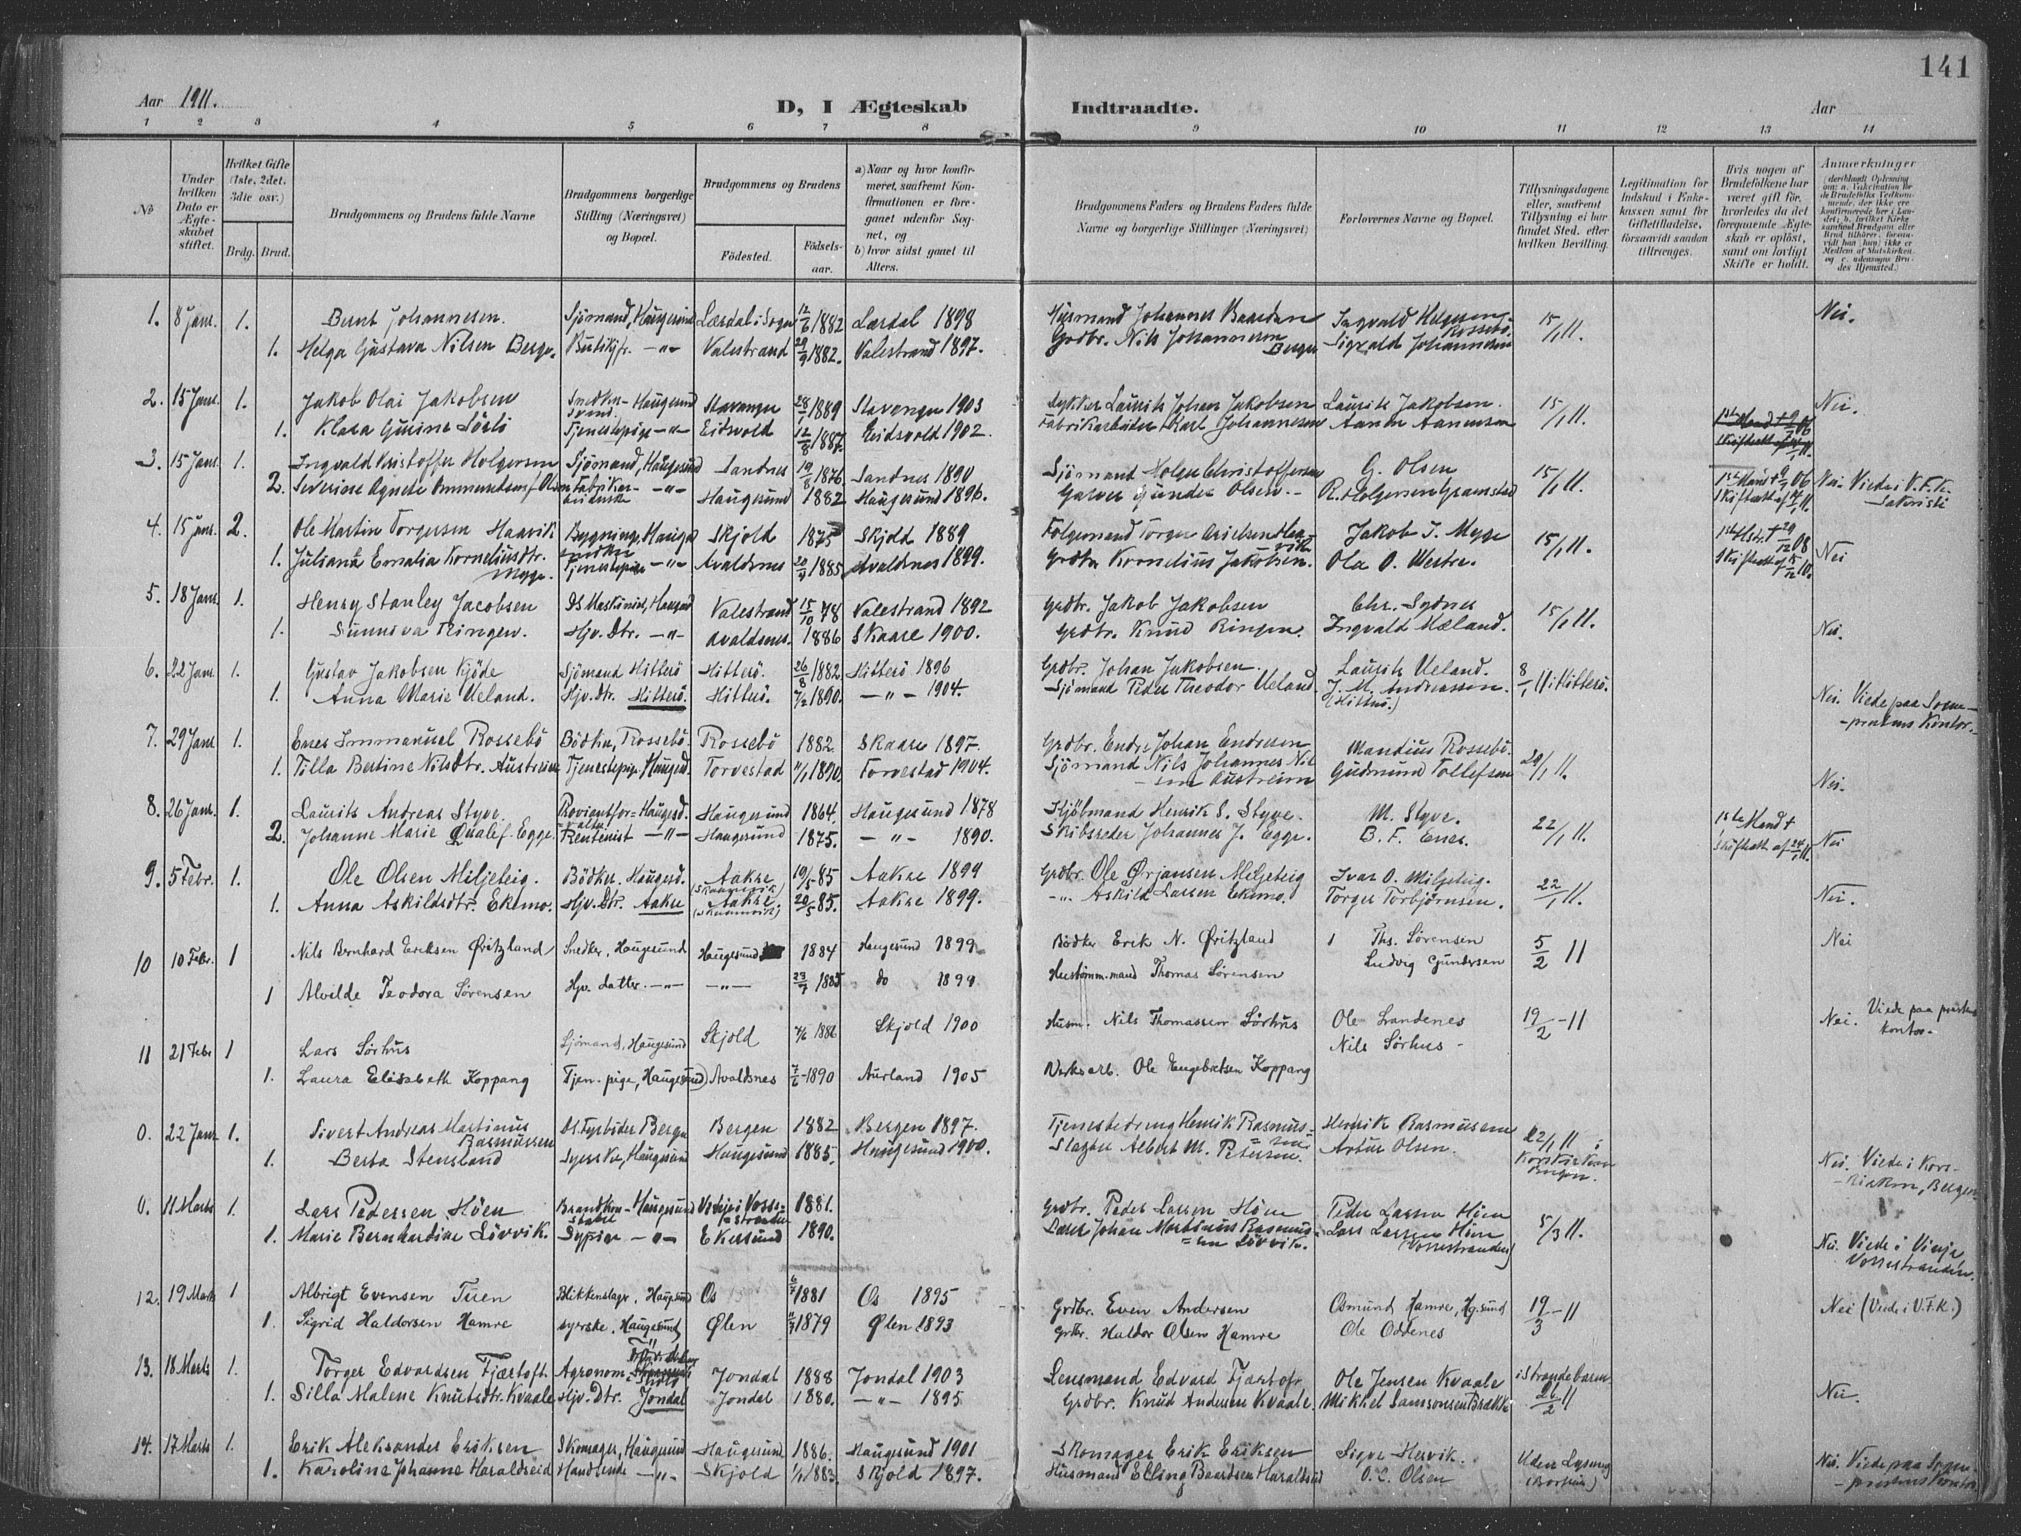 141
Aar 1911.
D, I Ægteskab Indtraadte.
Aar
1 2 3 4 5 6 7 8 9 10 11 12 13 14
No
Under hvilken Dato er Ægteskabet stiftet.
Hvilket Gifte (1ste, 2det, 3die osv.)
Brdg. Brud.
Brudgommens og Brudens fulde Navne
Brudgommens borgerlige Stilling (Næringsvei) og Bopæl.
Brudgommens og Brudens
Fødested.
Fødselsaar.
a) Naar og hvor konfirmeret, saafremt Konfirmationen er foregaaet udenfor Sognet, og
b) hvor sidst gaaet til Alters.
Brudgommens Faders og Brudens Faders fulde Navne og borgerlige Stillinger (Næringsvei)
Forlovernes Navne og Bopæl.
Tillysningsdagene eller, saafremt Tillysning ei har fundet Sted, efter hvilken Bevilling.
Legitimation for Indskud i Enkekassen samt for Giftetilladelse, forsaavidt saadan tiltrænges.
Hvis nogen af Brudefolkene har været gift før, hvorledes da det foregaaende Ægteskab er opløst, samt om lovligt Skifte er holdt.
Anmærkninger
1. 8 Janr. 1. Bernt Johannesen. Sjömand, Haugesund Lærdal i Sogn 12/6 1882 Lærdal 1898 Husmand Johannes Ingvald Helgesen Rossebö. 15/1 11. Nei.
1. Helga Gustava Nilsen Berge. Butikjfr. -"- Valestrand 29/9 1882. Valestrand 1897. Grdbr. Nils Johannesen Berge Sigvald Johannesen
2. 15 Janr. 1. Jakob Olai Jakobsen Snedkersvend Haugesund Stavanger 28/1 1889 Stavanger 1903 Laurits Johan Jakobsen Laurits Jakobsen. 15/1 11. Nei.
1. Klara Tjenestepige -"- Eidsvold 12/8 1887. Eidsvold 1902. Fabrikarbeider Karl Johannesen Aanen Aanensen
3. 15 Janr. 1. Ingvald Kristoffer Holgersen Sjömand, Haugesund Sandnes 19/8 1876 Sandnes 1890 Sjömand Holger Christoffersen G. Olsen 15/1 11. 1ste Mand + 9/7 06 Nei. Viede i V.F.K. Sakristi
2. Severine Agnete Ommundsen f. Olsen Fabrikarbeiderske -"- Haugesund 1882 Haugesund 1896. Garver Gunder Olsen. R. Holgersen Gramstad
4. 15 Janr. 2. Ole Martin Torgersen Haavik Bygningssnedker Haugesd Skjold 1875 Skjold 1889 Følgemand Torger Jakob J. Mygge 15/1 11. Nei
1. Juliana Emalia Korneliusdtr. Mygge. Tjenestepige -"- Avaldsnes 20/9 1885 Avaldsnes 1899. Grdbr. Kornelius Jakobsen. Ola O. Westre.
5. 18 Janr. 1. Henry Stanley Jacobsen DS Maskinist, Haugesd Valestrand 15/10 78 Valestrand 1892 Grdbr. Jakob Jakobsen Chr. Sydnes 15/1 11. Nei.
1. Sunniva Ringen. Hjv. Dtr. -"- Avaldsnes. 1886 Skaare 1900. Grdbr. Knud Ringen. Ingvald Mæland.
6. 22 Janr. 1. Gustav Jakobsen Kjöde Sjömand Hitterö Hitterö. 26/8 1882 Hitterö 1896 Grdbr. Johan Jakobsen. Laurits Ueland. 8/1 11 i Hitterö.
1. Anna Marie Ueland. Hjv. Dtr. Hitterö. Hitterö. 7/2 1890. -"- 1904. Sjömand Peder Theodor Ueland J. M. Andreassen. (Hitterö.) Nei. Viede paa Sogneprestens Kontor.
7. 29 Janr 1. Enes Immanuel Rossebö Bödker, Rossebö. Rossebö 1882. Skaare 1897. Grdbr. Endre Johan Endresen Mandius Rossebö. 29/1 11.
1. Tilla Bertine Nilsdtr. Austreim Tjenestepige Haugesd. Torvestad 11/1 1890. Torvestad 1904. Sjömand Nils Johannes Nilsen Austreim Gudmund Tollefsen Nei.
8. 26 Janr. 1. Laurits Andreas Styve. Haugesd. Haugesund 1864. Haugesund 1878 Henrik S. Styve. M. Styve. 22/1 11. 1ste Mand +
2. Johanne Marie Qvalef. Egge. Rentenist -"- Haugesund 1875. -"- 1890. Skibsreder Johannes J. Egge. B. F. Enes. Nei
9. 5 Febr. 1. Ole Olsen Miljeteig. Bödker. Haugesd. Aakre (Skaanevik) 19/5 85 Aakre 1899 Grdbr. Ole Ørjansen Miljeteig Ivar O. Miljeteig. 22/1 11.
1. Anna Askildsdtr. Ekimo. Hjv. Dtr. Aakre Aakre (Skaanevik) 20/5 85. Aakre 1899. -"- Askild Larsen Ekimo. Torger Torbjörnsen. Nei.
10 10 Febr. 1 Nils Bernhard Eriksen Øritzland Snedker, Haugesund Haugesund 1884 Haugesund 1899 Bödker Erik N. Øritzland Ths. Sørensen 5/2 11 Nei
1 Alvilde Teodora Sørensen Hjv. datter. -"- -"- 23/7 1885 do 1899. Thomas Sørensen Ludvig Gundersen
11 21 Febr 1 Lars Sørhus Sjömand, Haugesund Skjold 1886 Skjold 1900 Husm. Nils Thomassen Sørhus Ole Landenes 19/2 - 11 Nei. Viede paa prestens kontor.
Nils Sørhus
1. Laura Elisabeth Koppang Tjen.pige, Haugesund Avaldsnes 7/6 - 1890 Aurland 1905 Verksarb. Ole Engebretsen Koppang
0. 22 Janr 1. Sivert Andreas Martinus Rasmussen DS. Fyrbøder Bergen Bergen 1882 Bergen 1897. Henrik Rasmussen Henrik Rasmussen 22/1 11 i Korskirken Bergen.
1. Berta Stensland Syerske, Haugesund Haugesund 1885. Haugesund 1900. Slagter Albert M. Petersen. Artur Olsen. Nei. Viede i Korskirken, Bergen
0. 11 Marts 1. Lars Pedersen Höen Haugesund Vossestranden 1881. Grdbr. Peder Larsen Höen Peder Larsen Höen 5/3 11.
1. Marie Bernhardine Lövvik. Sypige -"- Ekersund 1890. Johan Martinus Rasmussen Lövvik. Lars Larsen Höen (Vossestranden) Nei. Viede i Vinje Vossestranden.
12. 19 Marts 1 Albrigt Evensen Tuen Blikkenslager, Haugesund Os 6/7 1881 Os 1895 Grdbr. Even Andersen Osmund Hamre, Hgsund 19/3 - 11 Nei (Viede i V.F.K.)
1. Sigrid Haldorsen Hamre syerske, Haugesund Ølen 1879 Ølen 1893 Grdbr. Haldor Olsen Hamre Ole Oddenes
13. 18 Marts 1. Torger Edvardsen Fjærtoft. Agronom Jondal 1888 Jondal 1903 Lensmand Edvard Fjærtoft Ole Jensen Kvaale i Strandebarm 26/2 11
1. Silla Malene Knutsdtr. Kvaale Hjv. Dtr. Jondal Jondal 1880. -"- 1895 Grdbr. Knud Andersen Kvaale. Mikkel Samsonsen Brakke Nei.
14. 17 Marts 1. Erik Aleksander Eriksen Skomager, Haugesund Haugesund 1886. Haugesund 1901 Skomager Erik Eriksen Sigve Hervik. Uden Lysning
1. Karoline Johanne Haraldseid Handlende -"- Skjold 1883. Skjold 1897. Husmand Elling Baardsen Haraldseid O. C. Olsen Nei. Viede paa Sogneprestens Kontor